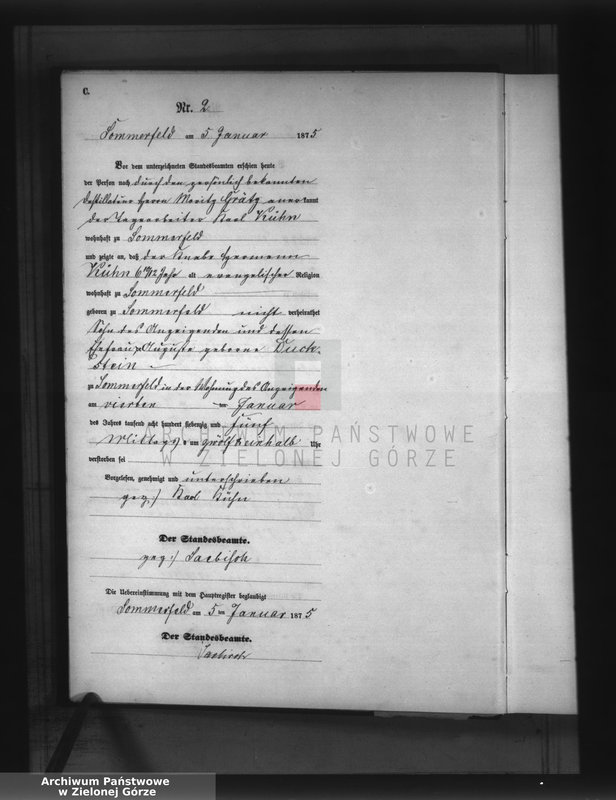 C.
Nr. 2
Sommerfeld am 5 Januar 1875
Vor dem unterzeichneten Standesbeamten erschien heute
der Person nach durch den persönlich bekannten
Destillateur Herrn Moritz Grätz aner kannt
der Tagearbeiter Karl Kühn
wohnhaft zu Sommerfeld
und zeigte an, daß der Knabe Hermann
Kühn 6 Jahr alt evangelischer Religion
wohnhaft zu Sommerfeld
geboren zu Sommerfeld nicht verheirathet
Sohn des Anzeigenden und dessen
Ehefrau Auguste geborne Buch-
stein
zu Sommerfeld in der Wohnung des Anzeigenden
am vierten ten Januar
des Jahres tausend acht hundert siebenzig und fünf
Mittags um zwölf einhalb Uhr
verstorben sei
Vorgelesen, genehmigt und unterschrieben
gez:) Karl Kühn
Der Standesbeamte.
gez:)
Die Uebereinstimmung mit dem Hauptregister beglaubigt
Sommerfeld am 5 ten Januar 1875
Der Standesbeamte.
ARCHIWUM PAŃSTWOWE
W ZIELONEJ GÓRZE
Archiwum Państwowe
w Zielonej Górze